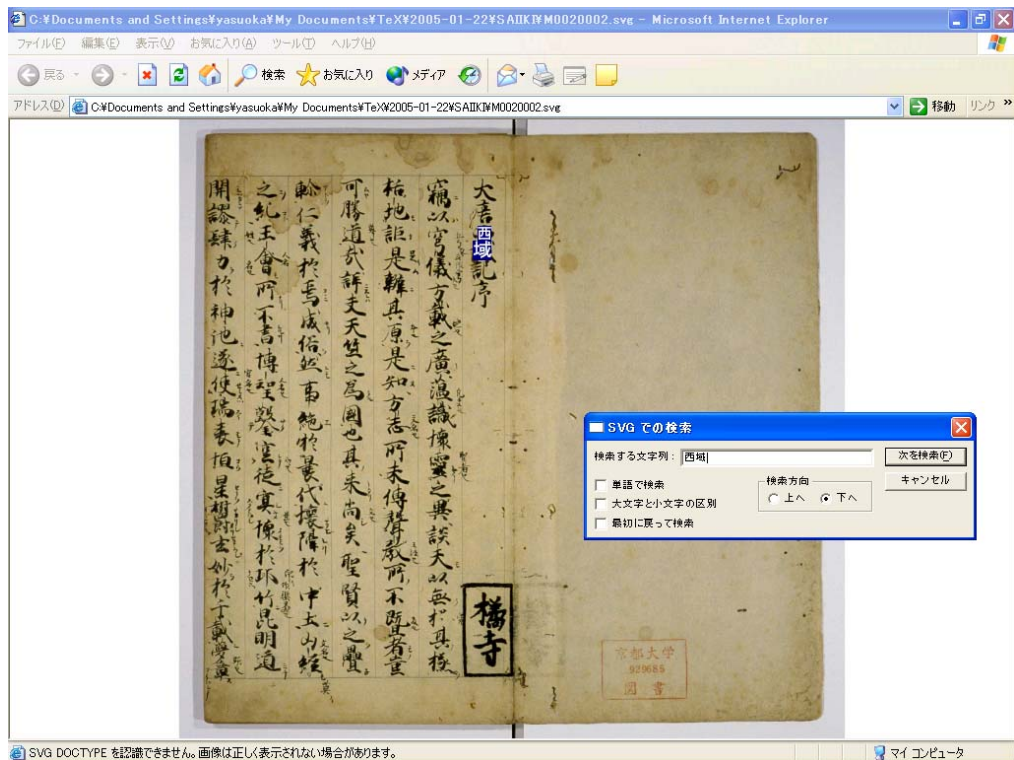 C:¥Documents and Settings¥yasuoka¥My Documents¥TeX¥2005-01-22¥SAIIKI¥M0020002.svg - Microsoft Internet Explorer
ファイル(F) 編集(E) 表示(V) お気に入り(A) ツール(T) ヘルプ(H)
戻る 検索 お気に入り メディア
アドレス(D) C:¥Documents and Settings¥yasuoka¥My Documents¥TeX¥2005-01-22¥SAIIKI¥M0020002.svg 移動 リンク »
大唐西域記序
竊以穹儀方載之廣蘊識懷靈之異談天以無究其極
括地詎是難其原是知方志所未傳聲教所不曁者豈
可勝道哉詳夫天竺之為國也其来尚矣聖賢以之疊
軫仁義於焉成俗然事絶於曩代壤隔於中土山經
之紀王會所不書博望鑿空徒寘懐於邛竹昆明道
開謬肆力於神池遂使瑞表恒星欝玄妙於千載夢彰
橘寺
京都大学
929685
図書
SVG での検索
検索する文字列: 西域
次を検索(F)
単語で検索
大文字と小文字の区別
最初に戻って検索
検索方向
上へ 下へ
キャンセル
SVG DOCTYPE を認識できません。画像は正しく表示されない場合があります。
マイ コンピュータ